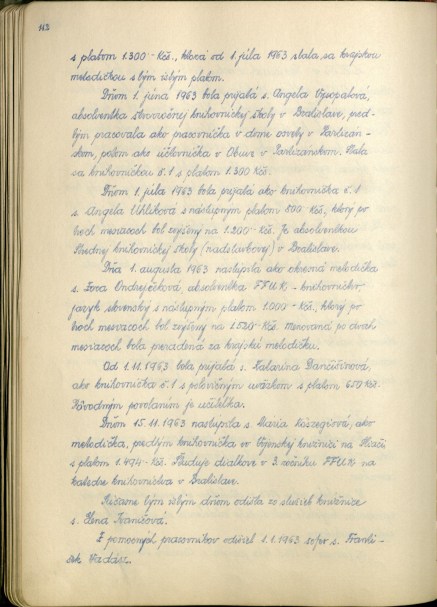 112
s platom 1.300 Kčs., ktorá od 1. júla 1963 stala sa krajskou
metodičkou s tým istým platom.
Dňom 1. júna 1963 bola prijatá s. Angela Vysopalová,
absolventka štvorročnej knihovníckej školy v Bratislave, pred-
tým pracovala ako pracovníčka v dome osvety v Partizán-
skom, potom ako účtovníčka v Obuve v Partizánskom. Stala
sa knihovníčkou č. 1 s platom 1.300 Kčs.
Dňom 1. júla 1963 bola prijatá ako knihovníčka č. 1
s. Angela Uhliková s nástupným platom 500 Kčs, ktorý po
troch mesiacoch bol zvýšený na 1.200 Kčs. Je absolventkou
Strednej knihovníckej školy (nadstavbovej) v Bratislave.
Dňa 1. augusta 1963 nastúpila ako okresná metodička
s. Eva Ondrejčeková, absolventka FFUK, - knihovníctvo,
jazyk slovenský s nástupným platom 1.000 Kčs., ktorý po
troch mesiacoch bol zvýšený na 1.520 Kčs. menovaná po dvoch
mesiacoch bola preradená za krajskú metodičku.
Od 1.11.1963 bola prijatá s. Katarína Dančišinová,
ako knihovníčka č. 1 s polovičným úväzkom s platom 650 Kčs.
Pôvodným povolaním je učiteľka.
Dňom 15.11.1963 nastúpila s. Mária Köszegiová, ako
metodička, predtým knihovníčka vo Vojenskej knižnici na Sliači
s platom 1.474 Kčs. Študuje diaľkove v 3. ročníku FFUK na
katedre knihovníctva v Bratislave.
Súčasne tým istým dňom odišla zo služieb knižnice
s. Elena Ivaničová.
Z pomocných pracovníkov odišiel 1.1.1963 šofér s. Franti-
šek Vadász.